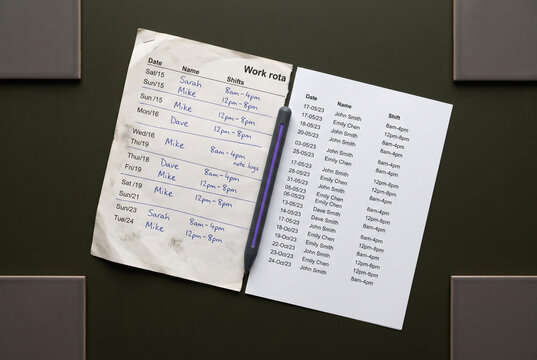 Work rota
Date Name Shifts
Sat/15 Sarah 8am-4pm
Sun/15 Mike 12pm-8pm
Sun /15 Mike 12pm-8pm
Mon/16 Dave 12pm-8pm
Wed/16
Thi/19 Mike 8am-4pm
note logs
Thu/18 Dave 8am-4pm
Fri/19 Mike 12pm-8pm
Sat /19 12pm-8pm
Sun/21
Sun/23 Sarah 8am-4pm
Tue/24 Mike 12pm-8pm
Date Name Shift
17-05/23 John Smith 8am-4pm
17-05/23 Emily Chen 12pm-8pm
18-05/23 John Smith
20-05/23 Emily Chen 8am-4pm
03-05/23 John Smith 12pm-8pm
25-05/23 Emily Chen
17-05/23 John Smith
17-05/23 John Smith
28-05/23 Emily Chen
31-05/23 John Smith
05-05/23 Emily Chen
06-05/23 John Smith
13-05/23 Dave Smith
14-05/23 Dave Smith
17-05/23 John Smith
18-Oct/23 Emily Chen
19-Oct/23 Emily Chen
22-Oct/23 John Smith
23-Oct/23 Emily Chen 12pm-8pm
24-Oct/23 John Smith 8am-4pm